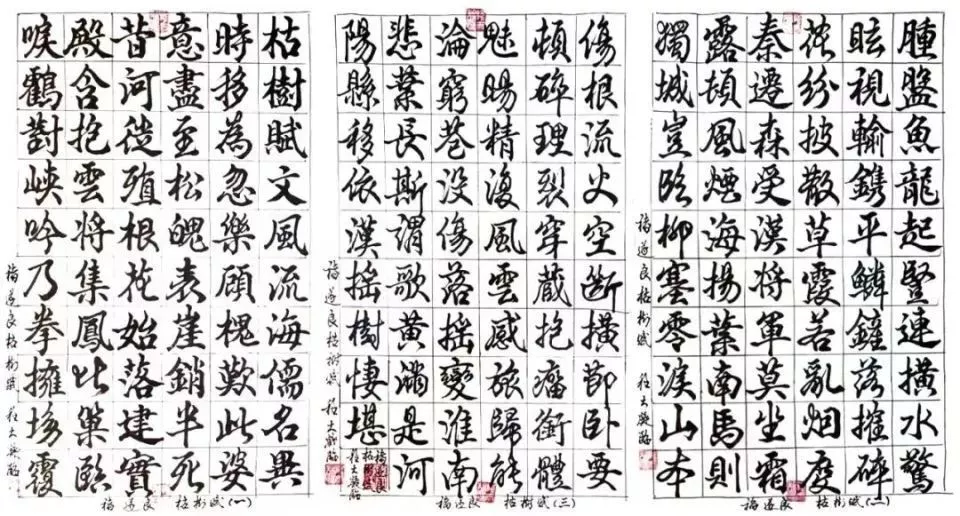 枯樹賦文風流海儒名異
時移為忽樂顧槐歎此婆
意盡至松魄表崖銷半死
昔河從殖根花始落建實
殿含抱雲將集鳳比巢臨
唳鶴對峽吟乃拳擁場覆
褚遂良枯樹賦
褚遂良 枯樹賦(一)
傷根流火空斷橫節卧要
頓碎理裂穿藏抱癭銜體
魅睗精復風雲感旅歸能
淪窮巷沒傷落搖變淮南
悲葉長斯謂歌黃潏是河
陽縣移依漢搖樹悽堪
褚遂良枯樹賦
褚遂良 枯樹賦(三)
腫盤魚龍起豎連橫水驚
眩視輸鐫平鱗鏟落摧碎
紛披散草霞若亂烟度
秦遷森受漢將軍莫坐霜
露頓風煙海揚葉南馬則
獨城豈臨柳塞零淚山本
褚遂良枯樹賦
褚遂良 枯樹賦(二)